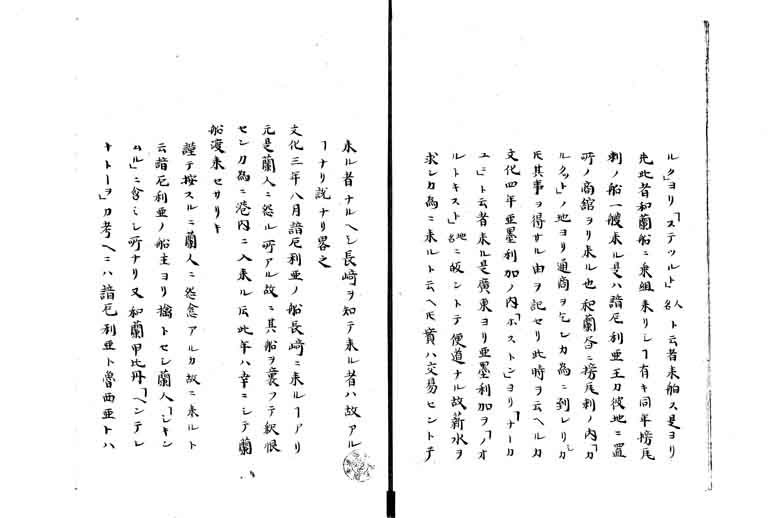 ルク」ヨリ「ステワルト」人名ト云者来舶ス是ヨリ
先此者和蘭船ニ乗組来リシヿ有キ同年榜葛
剌ノ船一艘来ル是ハ諳厄利亜王ヨリ彼地ニ置
所ノ商館ヨリ来ル也和蘭昏ニ榜葛剌ノ内「カ
ルクット」ノ地ヨリ通商ヲ乞シカ為ニ到レリシカ
𪜈其事ヲ得サル由ヲ記セリ此時ヲ云ヘルカ
文化四年亜墨利加ノ内「ボストン」ヨリ「ナーカ
ユビト云者来ル是廣東ヨリ亜墨利加ヲ「ノオ
ルトキスト」地名ニ皈ントテ便道ナル故薪水ヲ
求シカ為ニ来ルト云ヘ𪜈實ハ交易セントテ
来ル者ナルヘシ長﨑ヲ知テ来ル者ハ故アル
ヿナリ説ナリ畧之
文化三年八月諳厄利亜ノ船長﨑ニ来ルヿアリ
元是蘭人ニ怨ル所アル故ニ其船ヲ襲フテ報恨
センカ為ニ港内ニ入来ル𪜈此年ハ幸ニシテ蘭
船渡来セサリキ
謹テ按スルニ蘭人ニ怨念アルカ故ニ来ルト
云諳厄利亜ノ船主ヨリ擒トセシ蘭人「シキン
ムル」ニ含ミシ所ナリ又和蘭甲比丹「ヘンテレ
キトーヲ」カ考ヘニハ諳厄利亜ト魯西亜トハ